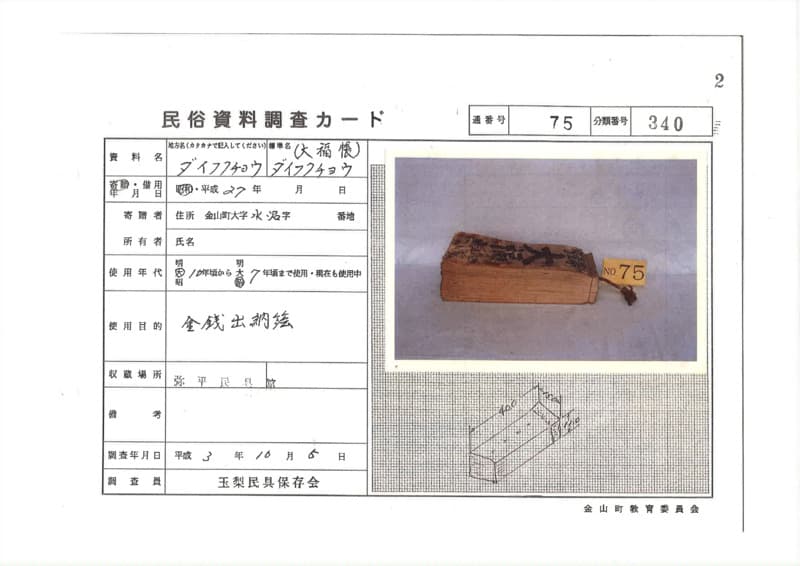 2
民俗資料調査カード
通番号 75 分類番号 340
資料名 地方名(カタカナで記入してください) ダイフクチョウ 標準名 (大福帳) ダイフクチョウ
寄贈・借用年月日 昭和・平成 27 年 月 日
寄贈者 住所 金山町大字 水沼 字 番地
所有者 氏名
使用年代 明 大 昭 10年頃から 明 大 昭 7年頃まで使用・現在も使用中
使用目的 金銭出納絵
収蔵場所 弥平民具館
備考
調査年月日 平成 3 年 10 月 5 日
調査員 玉梨民具保存会
NO 75
400
金山町教育委員会